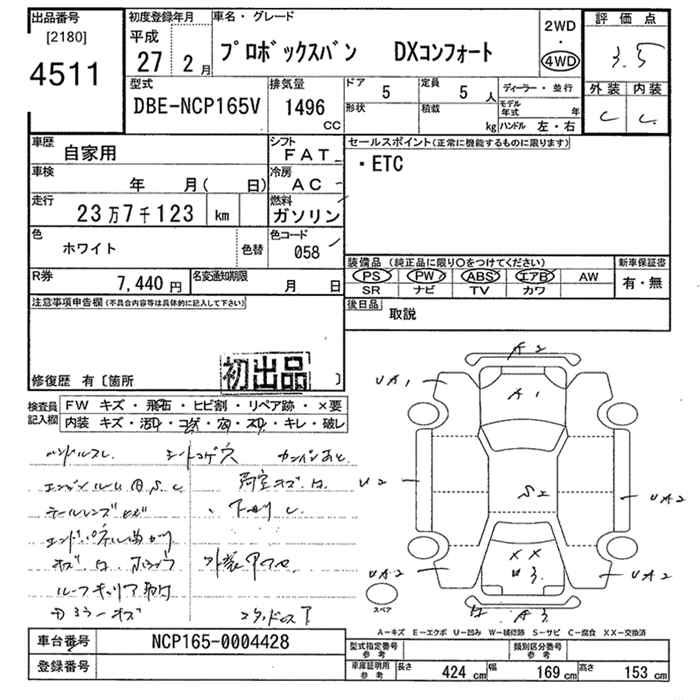 出品番号
[2180]
4511
初度登録年月
平成
27 2月
車名・グレード
プロボックスバン DXコンフォート
2WD
・
4WD
評価点
3.5
外装 内装
C C
型式
DBE-NCP165V
排気量
1496
CC
ドア
5
定員
5 人
形状
積載
kg
ディーラー・並行
モデル年式 年
ハンドル 左・右
車歴
自家用
シフト
FAT
車検
年 月( 日)
冷房
AC
走行
23万7千123 km
燃料
ガソリン
色
ホワイト
色替
色コード
058
R券
7,440円
名変通知期限
月 日
セールスポイント(正常に機能するものに限ります)
・ETC
装備品(純正品に限り○をつけてください)
新車保証書
PS PW ABS エアB AW
SR ナビ TV カワ
有・無
後日品
取説
注意事項申告欄(不具合内容等は具体的に記入して下さい)
修復歴 有〔箇所 〕
初出品
検査員記入欄
FW キズ・飛石・ヒビ割・リペア跡・×要
内装 キズ・汚れ・コゲ・穴・スリ・キレ・破レ
ハンドルスレ シートコゲ穴
エンジンルーム
テールレンズ
下回り
ルーフキャリア
A2
UA1 A1 UA1
U2 S2 UA2
XX
U3
UA2 UA2
A3
スペア
A-キズ E-エクボ U-凹み W-補修跡 S-サビ C-腐食 XX-交換済
車台番号
NCP165-0004428
登録番号
型式指定番号
参考
類別区分番号
参考
車庫証明用
参考
長さ 424 cm 幅 169 cm 高さ 153 cm